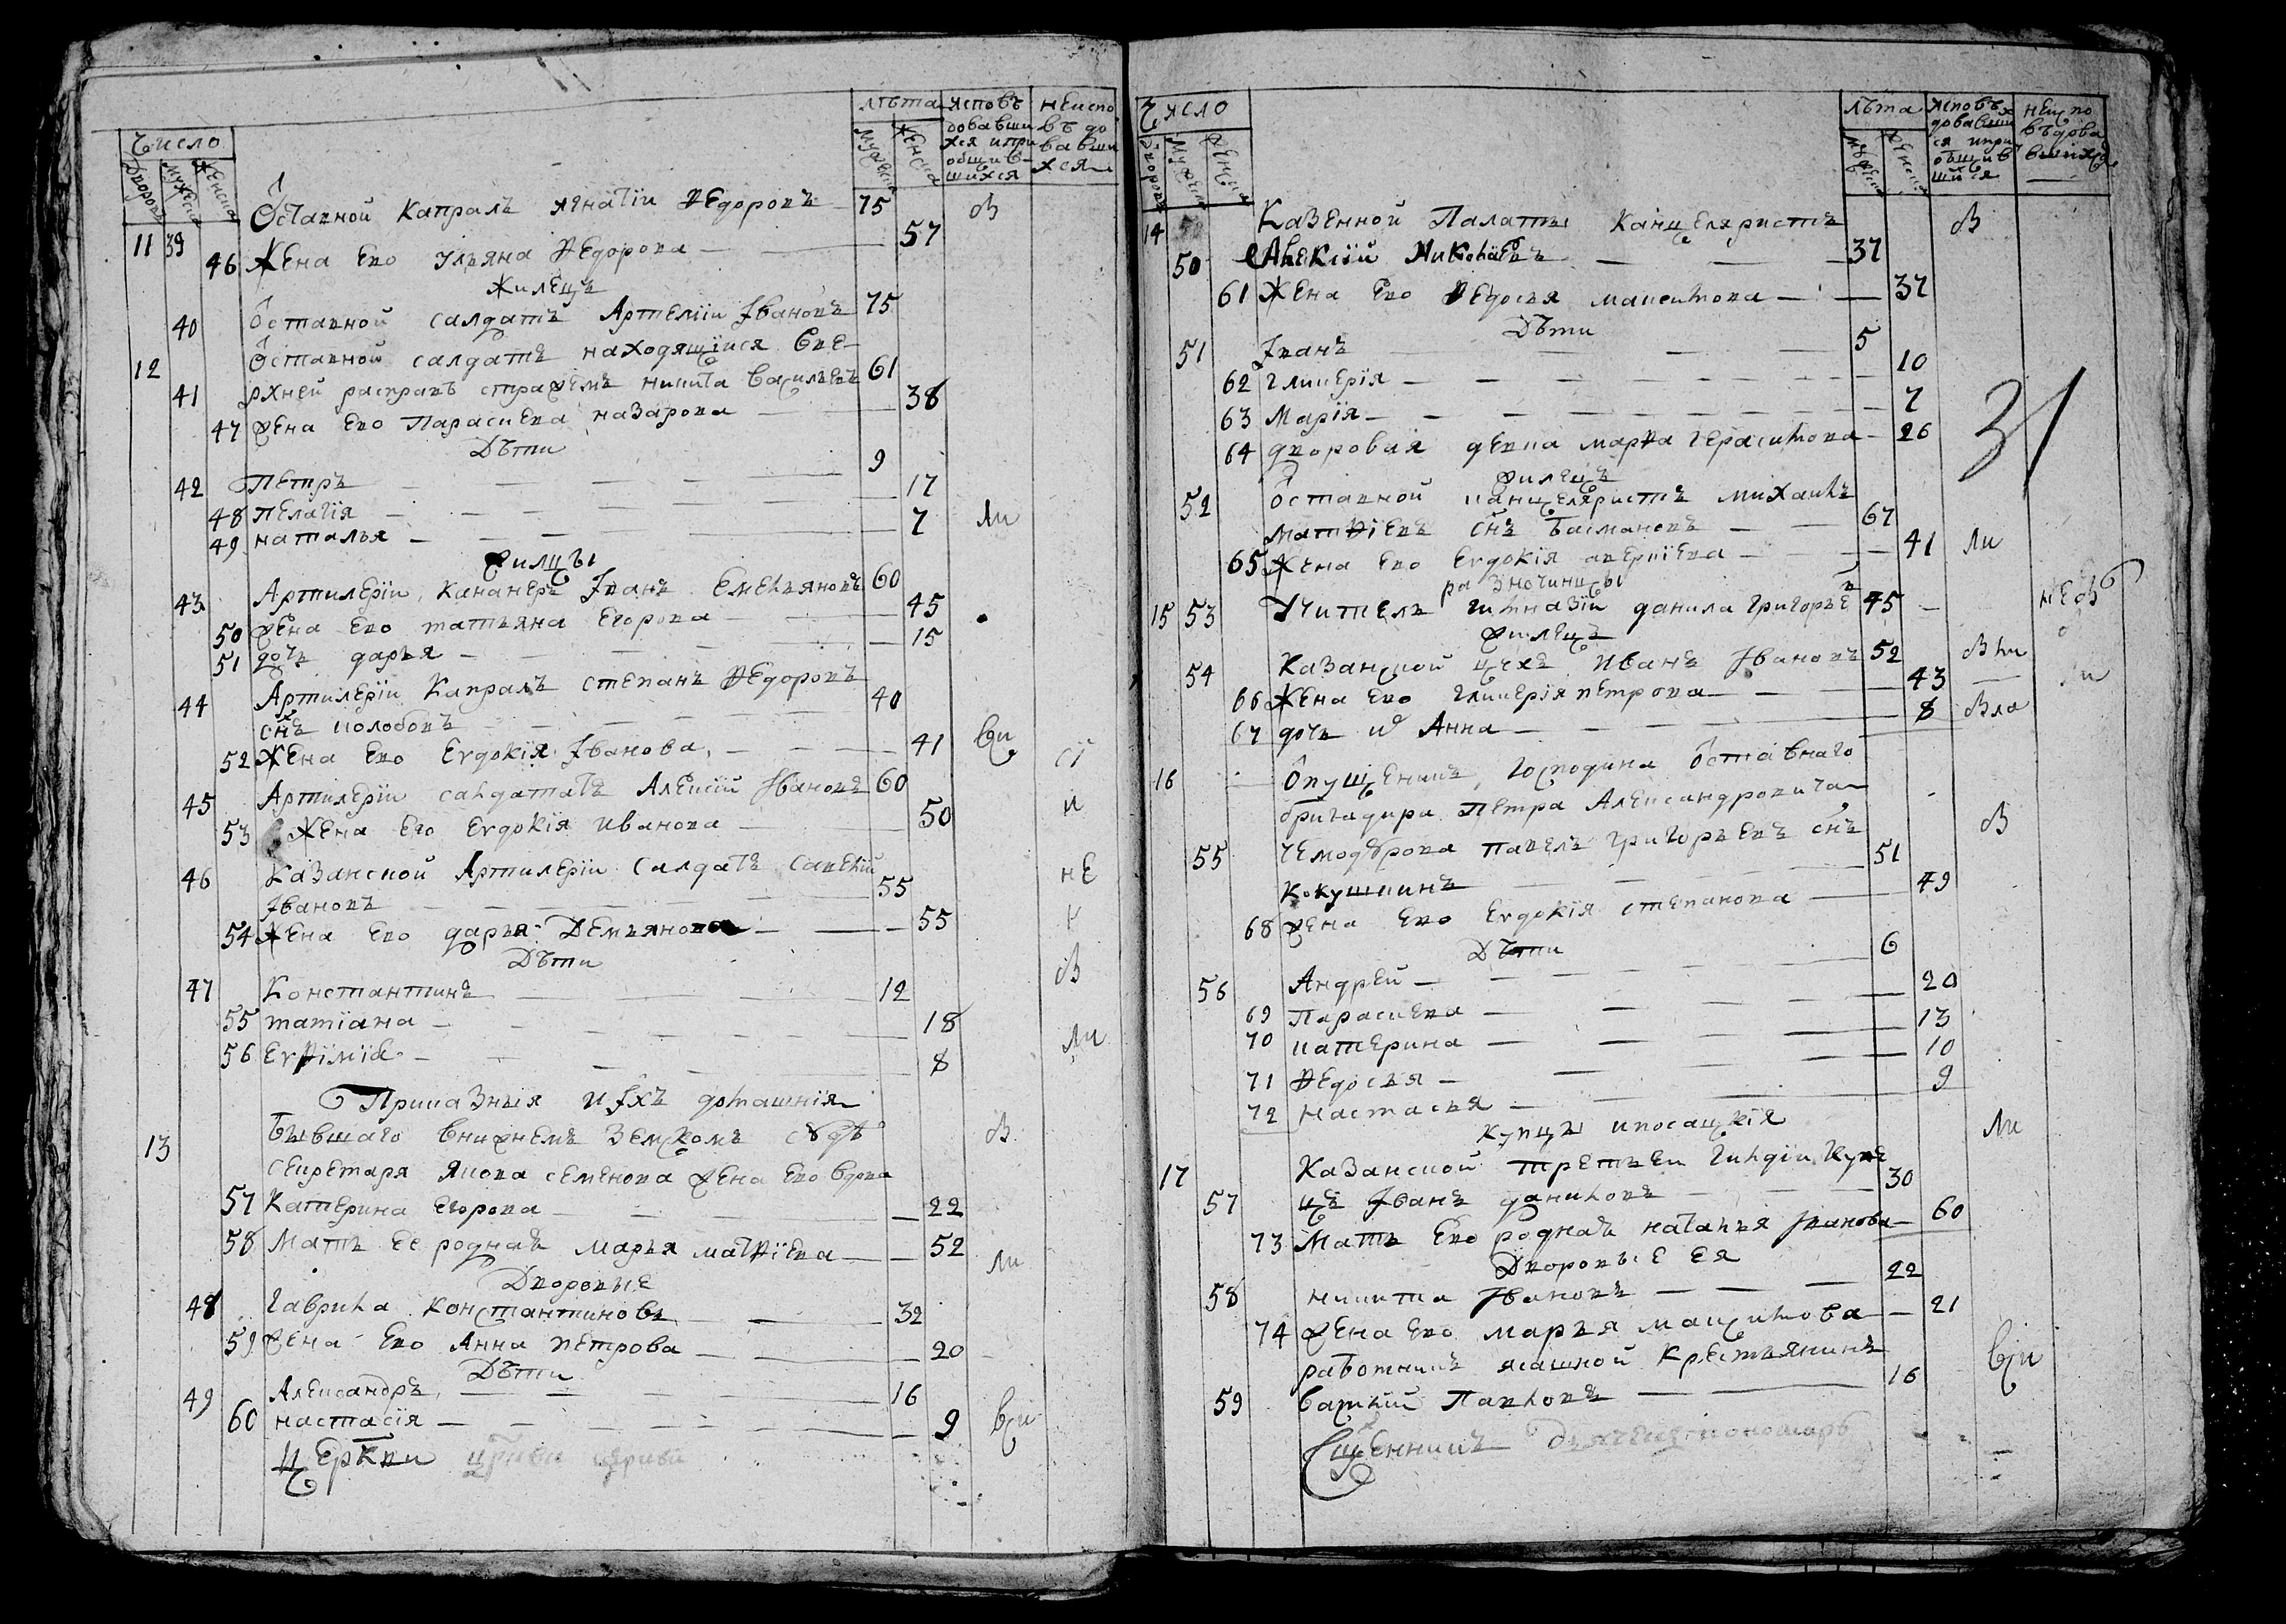 число
лѣта исповѣ неиспо
дворовъ мужеска женска
мужеска женска
довавши вѣдо
хся ипри вавши
общив хся
шихся
11 39 Оставной капралъ игнатіи Федоровъ 75 ов
46 Жена ево ульяна Федорова 57
Жилецъ
40 Оставной салдатъ Артеміи Івановъ 75
12 Оставной салдатъ находящіися вве
41 рхней расправѣ стражемъ никита васильевъ 61
47 жена ево Параскева назарова 38
Дѣти
42 Петръ 9
48 пелагія 17
49 наталья 7 ли
жилцы
43 Артилеріи канонеръ Іванъ Емельяновъ 60
50 жена ево татьяна Егорова 45
51 дочь дарья 15
44 Артилеріи Капралъ степанъ Федоровъ
снъ колобовъ 40
52 Жена ево Евдокія Іванова 41 вси
45 Артилеріи салдатъ Алексіи Івановъ 60
53 Жена Его Евдокія иванова 50
46 Казанской Артилеріи салдатъ савелій
Івановъ 55 не
54 Жена ево дарья Демьянова 55
Дѣти ов
47 Константинъ 12
55 татіана 18
56 Евфимія 8 ли
Приказныя ихъ домашнія
13 Бывшаго внижнемъ земскомъ судѣ ов
секретаря якова семенова жена ево вдова
57 Катерина Егорова 22
58 Мать ее родная марья матфіева 52
Дворовые ли
48 Гаврила Константиновъ 32
59 жена ево Анна петрова 20
Дѣти
49 Александръ 16
60 настасія 9 вси
Церкви
число
лѣта исповѣ неиспо
дворовъ мужеска женска
мужеска женска
довавши вѣдова
ся ипри вшихся
общив
шийся
14 Казенной Палаты канцеляристъ ов
50 Алексіи Николаевъ 37
61 Жена ево Федосья максимова 37
Дѣти
51 Іванъ 5
62 гликерія 10
63 Марія 7
64 дворовая девка марфа герасимова 26
31
жилецъ
52 Оставной канцеляристъ михаилъ
матфіевъ снъ Басмановъ 67
65 Жена ево Евдокія аверкіева 41 ли
разночинцы
15 53 Учитель гимназіи данила григорье въ 45 неов
жилецъ
54 Казанской цеха иванъ Івановъ 52 овли
66 Жена ево гликерія петрова 43
67 дочь их Анна 8 овла
16 Опущенникъ господина Оставнаго
бригадира Петра Александровича
55 чемодурова павелъ григорьевъ снъ ов
Кокушкинъ 51
68 жена ево Евдокія степанова 49
Дѣти
56 Андрей 6
69 Параскева 20
70 катерина 13
71 Федосья 10
72 настасья 9
купцы ипосацкія ли
17 Казанской третьеи гилдіи купе
57 цъ Іванъ даниловъ 30
73 Мать ево родная наталья іванова 60
Дворовые ея
58 никита Івановъ 22
74 жена ево марья максимова 21
работникъ ясашной крестьянинъ
59 василий Павловъ 16 вси
Сщенникъ